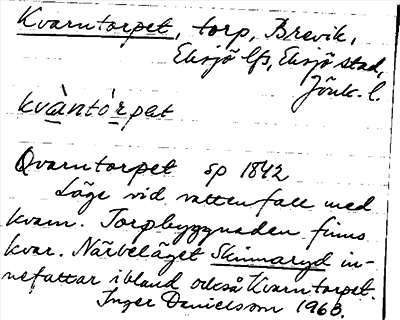 Kvarntorpet, torp, Brevik,
Eksjö lfs, Eksjö stad,
Jönk. l.
kvàntòrpet
Qvarntorpet sp 1842
Läge vid vattenfall med
kvarn. Torpbyggnaden finns
kvar. Närbeläget Skinnaryd in-
nefattar ibland också Kvarntorpet.
Inger Danielsson 1963.